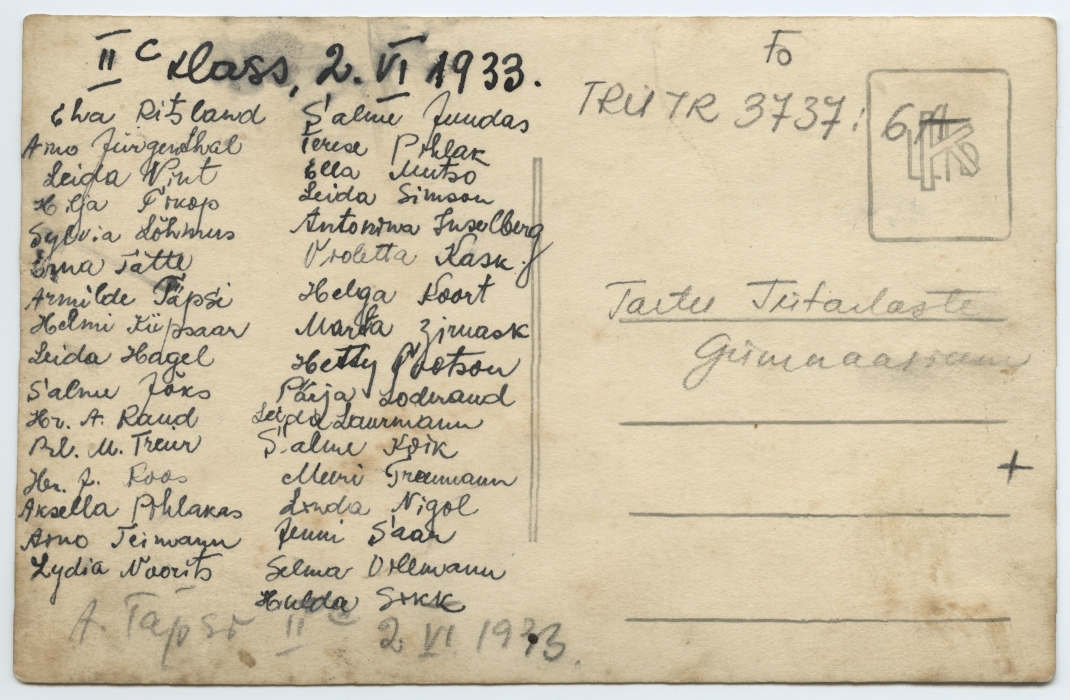 II c klass, 2. VI 1933.
Elva Ritsland
Arno Jürgenthal
Leida Vint
Hilja Proop
Sylvia Lõhmus
Erna Tätte
Armilde Täpsi
Helmi Küpsaar
Leida Hagel
Salme Jõks
Hr. A. Raud
Prl. M. Treur
Hr. J. Roos
Aksella Põhlakas
Arno Teimann
Lydia Noorits
Salme Jundas
Terese Põhlak
Ella Mutso
Leida Simson
Antonina Inselberg
Violetta Kask.
Helga Koort
Marta Zirnask
Hetty Prootson
Pärja Loderand
Leida Laurmann
Salme Koik
Meeri Treumann
Linda Nigol
Jenni Saar
Selma Ollmann
Hulda Sikk
A Täpsi II c 2 VI 1933.
Fo
TRÜ TR 3737:6
Tartu Tütarlaste
Gümnaasium
+